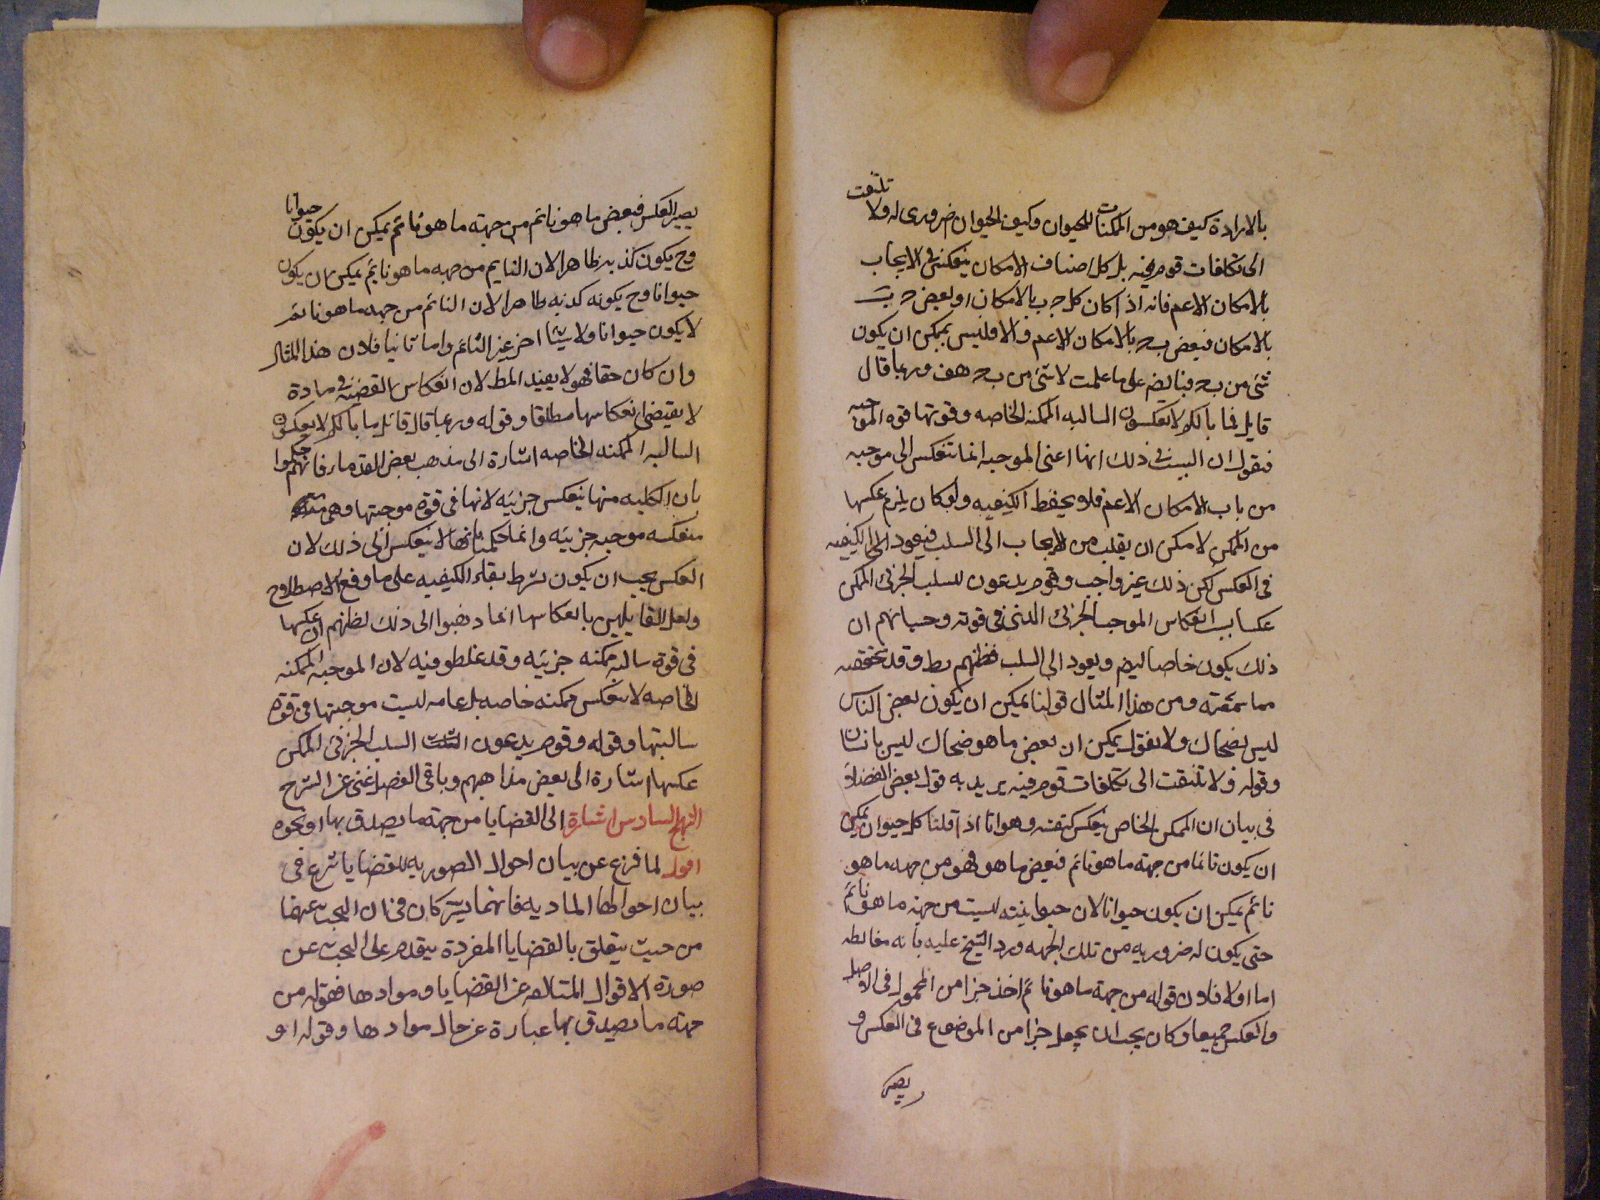 تلتفت
بالارادة كيف هو من الممكنات للحيوان وكيف الحيوان ضرورى له ولا
الى تكلفات قوم فيه بل كل اصناف الامكان ينعكس فى الايجاب
بالامكان الاعم فانه اذا كان كل ج ب بالامكان او بعض ج ب
بالامكان فبعض ب ج بالامكان الاعم والا فليس يمكن ان يكون
شئ من ب ج فبالضه على ما علمت لا شئ من ب ج هف وربما قال
قايل فما بالكم لا تعكسون السالبه الممكنه الخاصه وقوتها قوه الموجبه
فنقول ان السبب فى ذلك انها اعنى الموجبه انما تنعكس الى موجبه
من باب الامكان الاعم فلا يحفظ الكيفيه ولو كان يلزم عكسها
من الممكن لامكن ان يقلب من الايجاب الى السلب فيعود الى الكيفيه
فى العكس لكن ذلك غير واجب وقوم يدعون للسلب الجزئى الممكن
عكسا بسبب انعكاس الموجب الجزئى الذى فى قوته وحسبانهم ان
ذلك يكون خاصا ايضا ويعود الى السلب فظنهم بط وقد تتحققه
مما سمعته ومن هذا المثال قولنا يمكن ان يكون بعض الناس
ليس بضحاك ولا نقول يمكن ان بعض ما هو ضحاك ليس بانسان
وقوله ولا تلتفت الى تكلفات قوم فيه يريد به قول بعض الفضلاء
فى بيان ان الممكن الخاص ينعكس كنفسه وهو انا اذا قلنا كل حيوان يمكن
ان يكون نائما من جهة ما هو نائم فبعض ما هو فهو من جهه ما هو
نائم يمكن ان يكون حيوانا لان حيوانيته ليست من جهه ما هو نائم
حتى يكون له ضروريه من تلك الجهه ورد الشيخ عليه بانه مغالطه
اما اولا فلان قوله من جهة ما هو نائم اخذ جزا من المحمول فى الاصل
والعكس جميعا وكان يجب ان يجعل جزا من الموضوع فى العكس و
يصير
يصير العكس فبعض ما هو نائم من جهته ما هو نائم يمكن ان يكون حيوانا
وح يكون كذبه ظاهرا لان النايم من جهه ما هو نايم يمكن ان يكون
حيوانا وح يكونه كذبه ظاهرا لان النائم من جهه ما هو نائم
لا يكون حيوانا ولا شيئا اخر غير النائم واما ثانيا فلان هذا المثال
وان كان حقا فهو لا يفيد المط لان انعكاس القضيه فى مادة
لا يقتضى انعكاسها مطلقا وقوله وربما قال قائل ما بالكم لا تعكسون
السالبه الممكنه الخاصه اشارة الى مذهب بعض القدماء فانهم حكموا
بان الكليه منها ينعكس جزئيه لانها فى قوة موجبتها وهى
منعكسه موجبه جزئيه وانما حكمنا بانها لا ينعكس الى ذلك لان
العكس يجب ان يكون شرط بقاء الكيفيه على ما وقع الاصطلاح
ولعل القايلين بانعكاسها انما ذهبوا الى ذلك لظنهم ان عكسها
فى قوة سالبه ممكنه جزئيه وقد غلطو فيه لان الموجبه الممكنه
الخاصه لا ينعكس ممكنه خاصه بل عامه ليست موجبتها فى قوة
سالبتها وقوله وقوم يدعون السلب الجزئى الممكن
عكسها اشارة الى بعض مذاهبهم وباقى الفصل غنى عن الشرح
النهج السادس اشارة الى القضايا من جهة ما يصدق بها او نحوه
اقول لما فرغ عن بيان احوال الصوريه للقضايا شرع فى
بيان احوالها الماديه فانها يشتركان فى ان البحث عنهما
من حيث يتعلق بالقضايا المفردة يتقدم على البحث عن
صورة الاقوال المتالفه عن القضايا وموادها فقوله من
جهة ما يصدق بها عبارة عن حال موادها وقوله او